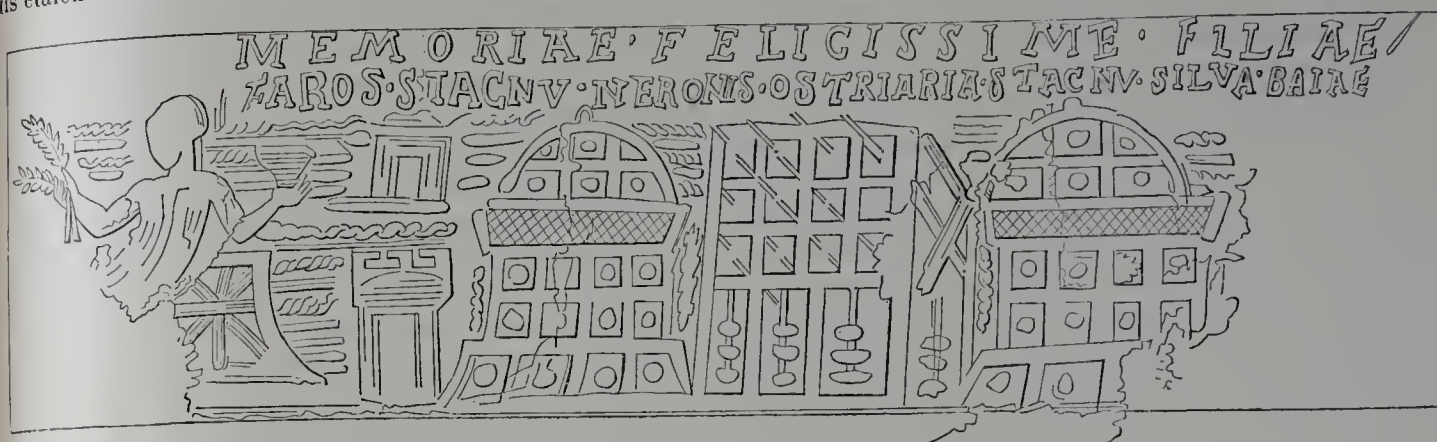 MEMORIAE·FELICISSIME·FILIAE
FAROS·STACNV·NERONIS·OSTRIARIA·STACNV·SILVA·BAIAE